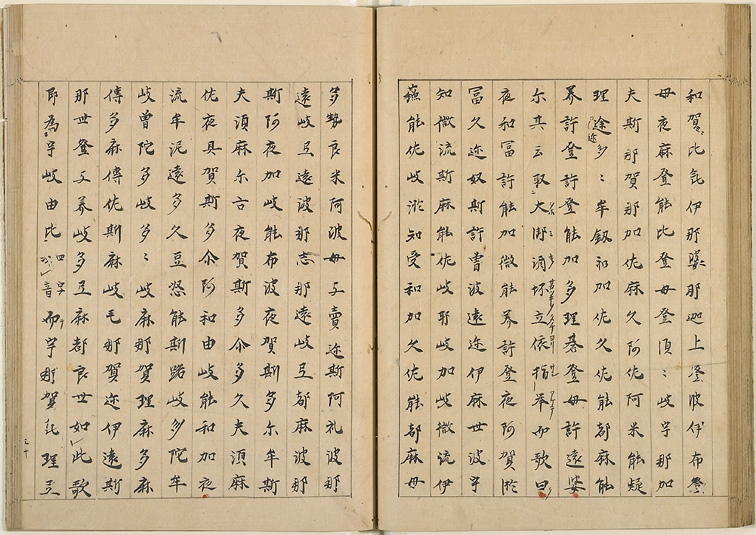 和賀比氣伊那曝那迦上登波伊布登
母夜麻登能比登母登須〻岐宇那加
夫斯那賀那加佐麻久阿佐阿米能疑
理途多〻牟釼和加佐久佐能都麻能
养許登許登能加多理碁登母許遠婆
尓其云取大御酒坏立依指挙而歌曰
夜和冨許能加微能养許登夜阿賀淤
冨久迩奴斯許曽波遠迩伊麻世波宇
知微流斯麻能佐岐耶岐加岐微流伊
蘓能佐岐淤知受和加久佐能都麻母
多勢良米阿波母与賣迩斯阿礼波那
遠岐弖遠波那志那遠岐弖都麻波那
斯阿夜加岐能布波夜賀斯多尓牟斯
夫須麻尓古夜賀斯多尓多久夫須麻
佐夜具賀斯多尓阿和由岐能和加夜
流牟泥遠多久豆怒能斯路岐多陀牟
岐曽陀多岐多〻岐麻那賀理麻多麻
傳多麻傳佐斯麻岐毛那賀迩伊遠斯
那世登与养岐多弖麻都良世如此歌
即為宇岐由比四字以音而宇那賀氣理弖
三十